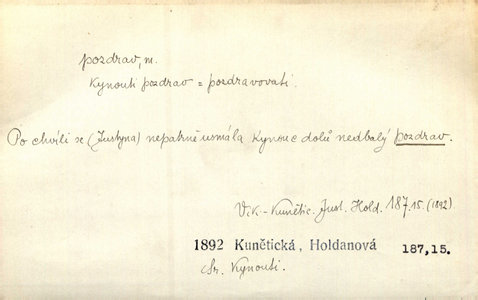 pozdrav, m.
Kynouti pozdrav = pozdravovati.
Po chvíli se (Justyna) nepatrně usmála kynouc dolů nedbalý pozdrav.
Vik.-Kunětic. Just. Hold. 187.15 (1892)
1892 Kunětická, Holdanová 187,15.
Sr. Kynouti.